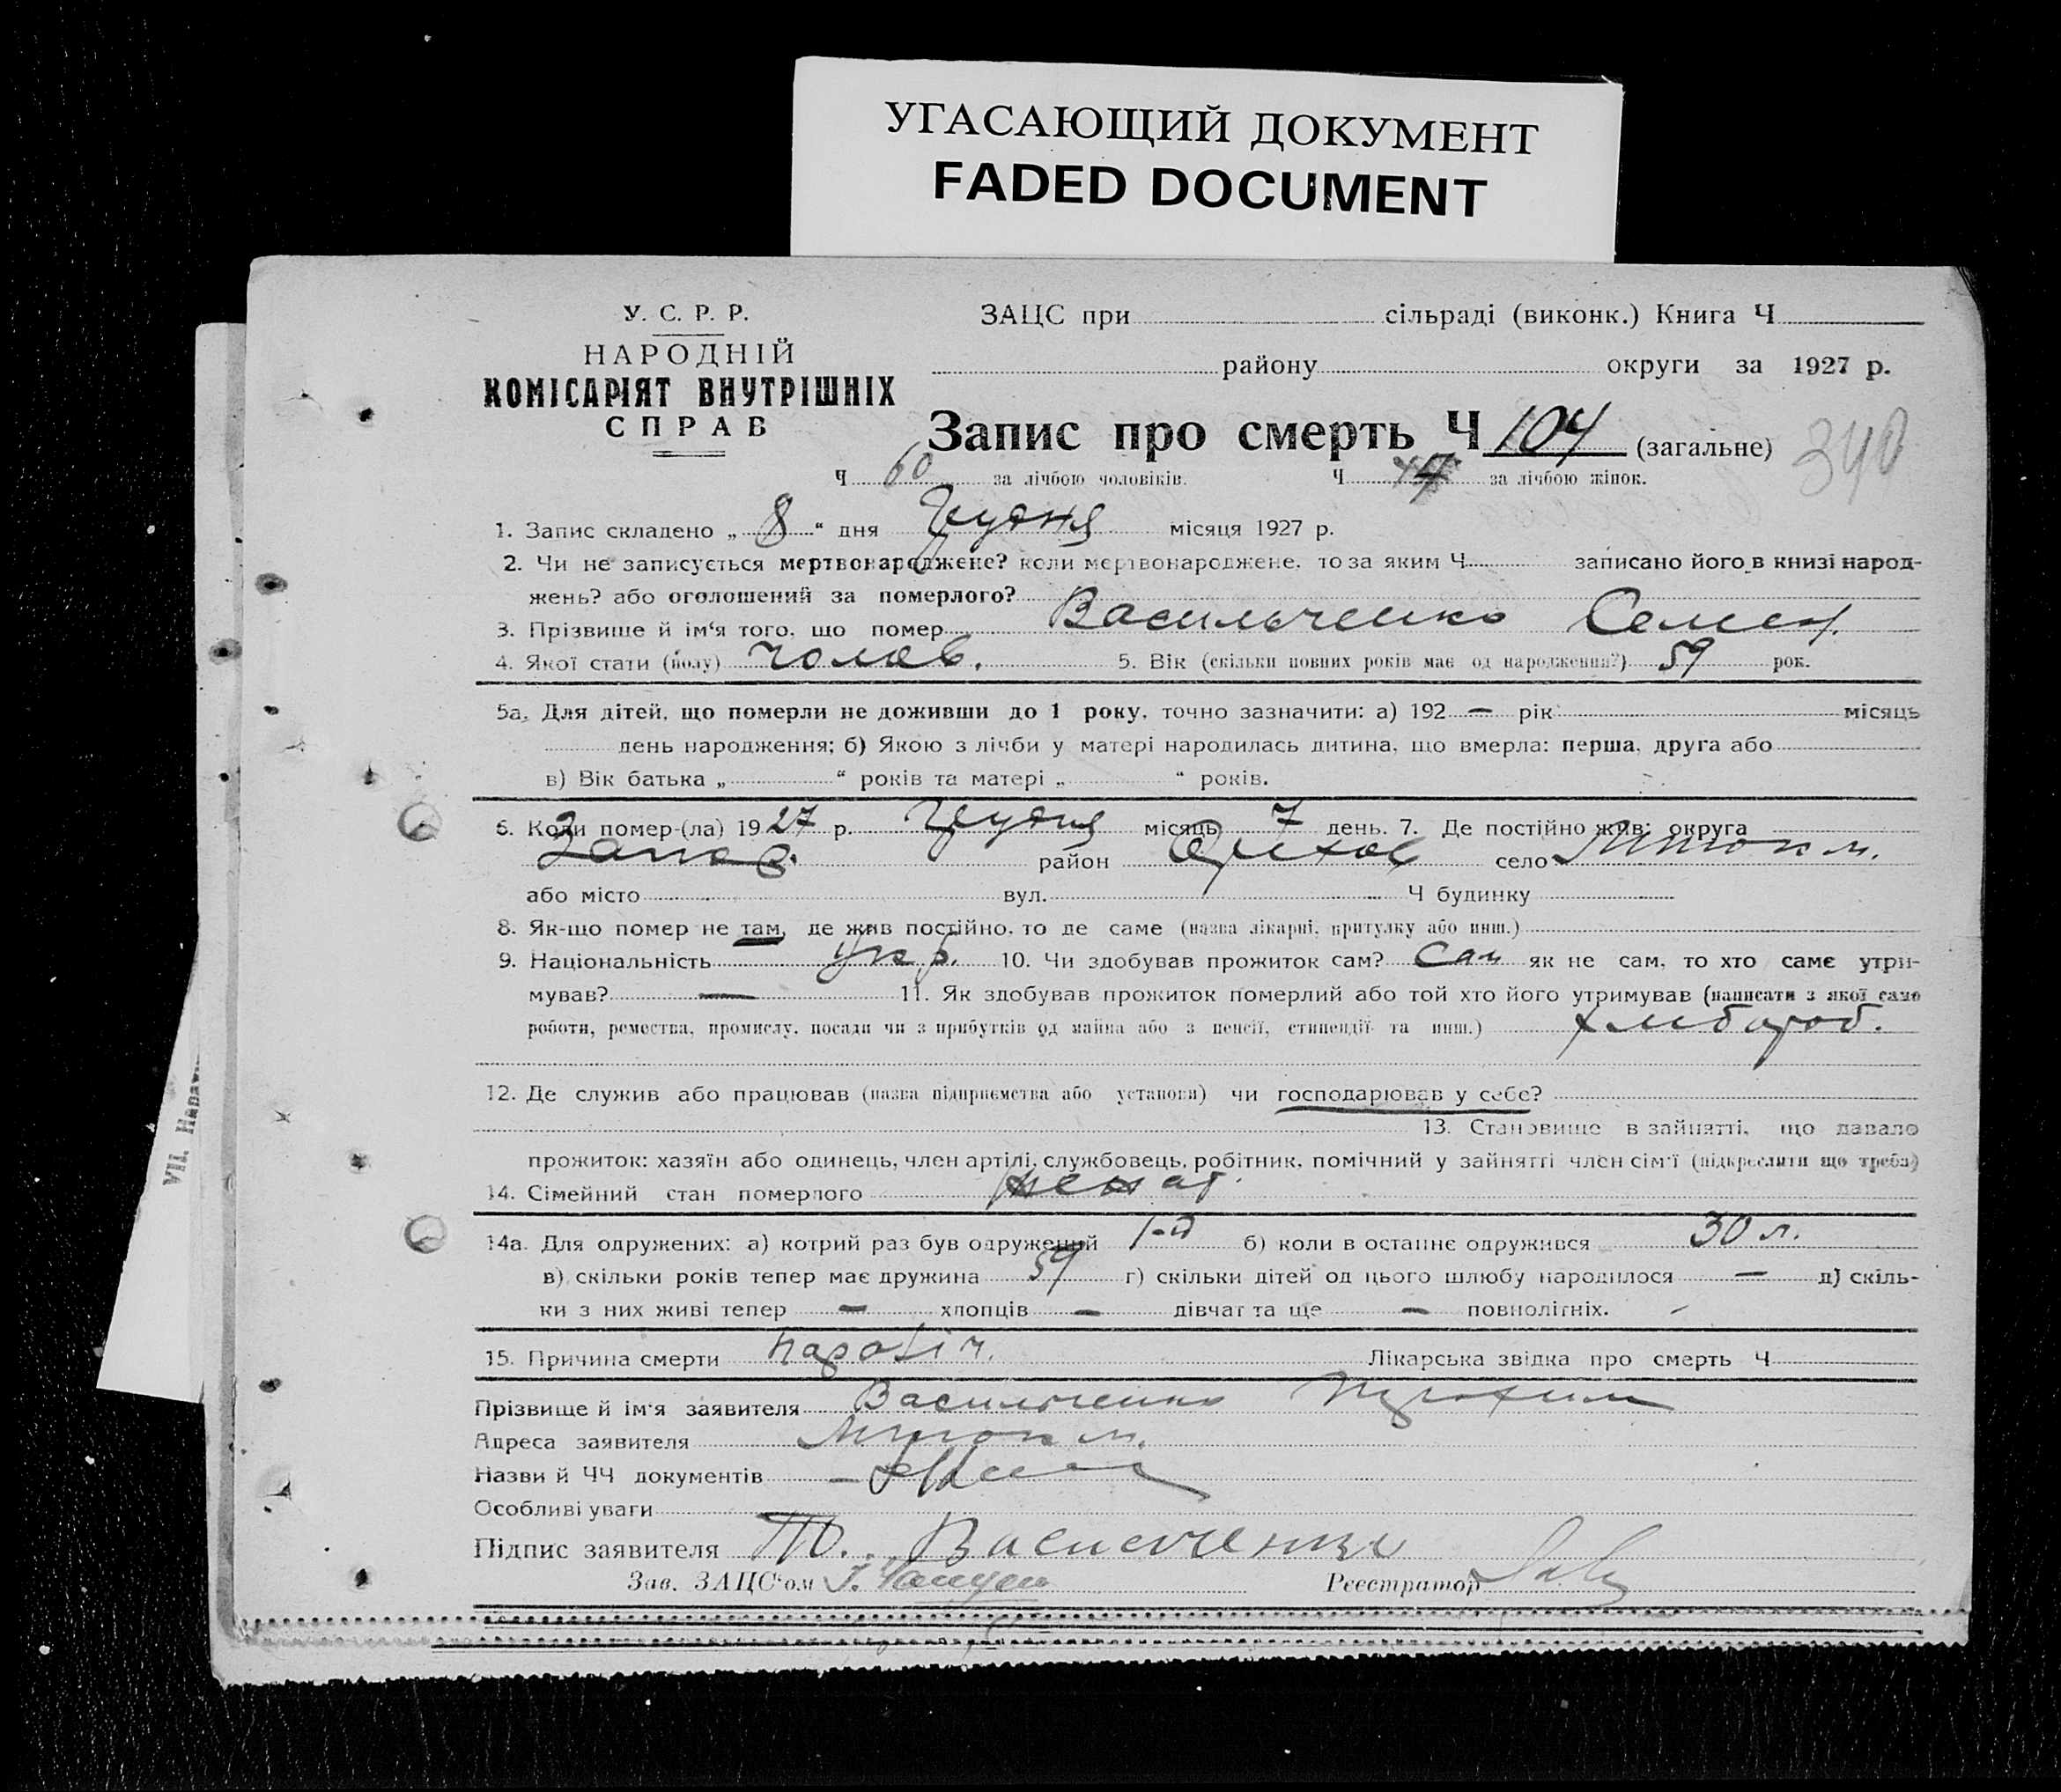 УГАСАЮЩИЙ ДОКУМЕНТ
FADED DOCUMENT
У. С. Р. Р.
НАРОДНІЙ
КОМІСАРІЯТ ВНУТРІШНІХ
СПРАВ
ЗАЦС при сільраді (виконк.) Книга Ч
району округи за 1927 р.
Запис про смерть Ч 104 (загальне) 340
Ч 60 за лічбою чоловіків. Ч за лічбою жінок.
1. Запис складено „ 8 “ дня Грудня місяця 1927 р.
2. Чи не записується мертвонароджене? коли мертвонароджене, то за яким Ч записано його в книзі народ-
жень? або оголошений за померлого?
3. Прізвище й ім‘я того, що помер Васильченко Семен
4. Якої стати (полу) чолов. 5. Вік (скільки повних років має од народження?) 59 рок.
5а. Для дітей, що померли не доживши до 1 року, точно зазначити: а) 192 — рік місяць
день народження; б) Якою з лічби у матері народилась дитина, що вмерла: перша, друга або
в) Вік батька „ “ років та матері „ “ років.
6. Коли помер-(ла) 1927 р. Грудня місяць 7 день. 7. Де постійно жив: округа
Запор. район Оріхов село
або місто вул. Ч будинку
8. Як-що помер не там, де жив постійно, то де саме (назва лікарні, притулку або инш.)
9. Національність Укр. 10. Чи здобував прожиток сам? Сам як не сам, то хто саме утри-
мував? — 11. Як здобував прожиток померлий або той хто його утримував (написати з якої само
роботи, ремества, промислу, посади чи з прибутків од майна або з пенсії, стипендії та инш.) хлібороб.
12. Де служив або працював (назва підприємства або установи) чи господарював у себе?
13. Становище в зайнятті, що давало
прожиток: хазяїн або одинець, член артілі, службовець, робітник, помічний у зайнятті член сім‘ї (підкреслити що треба)
14. Сімейний стан померлого женат.
14а. Для одружених: а) котрий раз був одружений 1-й б) коли в останнє одружився 30 л.
в) скільки років тепер має дружина 59 г) скільки дітей од цього шлюбу народилося — д) скіль-
ки з них живі тепер — хлопців — дівчат та ще — повнолітніх.
15. Причина смерти параліч. Лікарська звідка про смерть Ч
Прізвище й ім‘я заявителя Васильченко
Адреса заявителя
Назви й ЧЧ документів
Особливі уваги
Підпис заявителя Т. Васильченко
Зав. ЗАЦС‘ом Реєстратор
VII. Народ